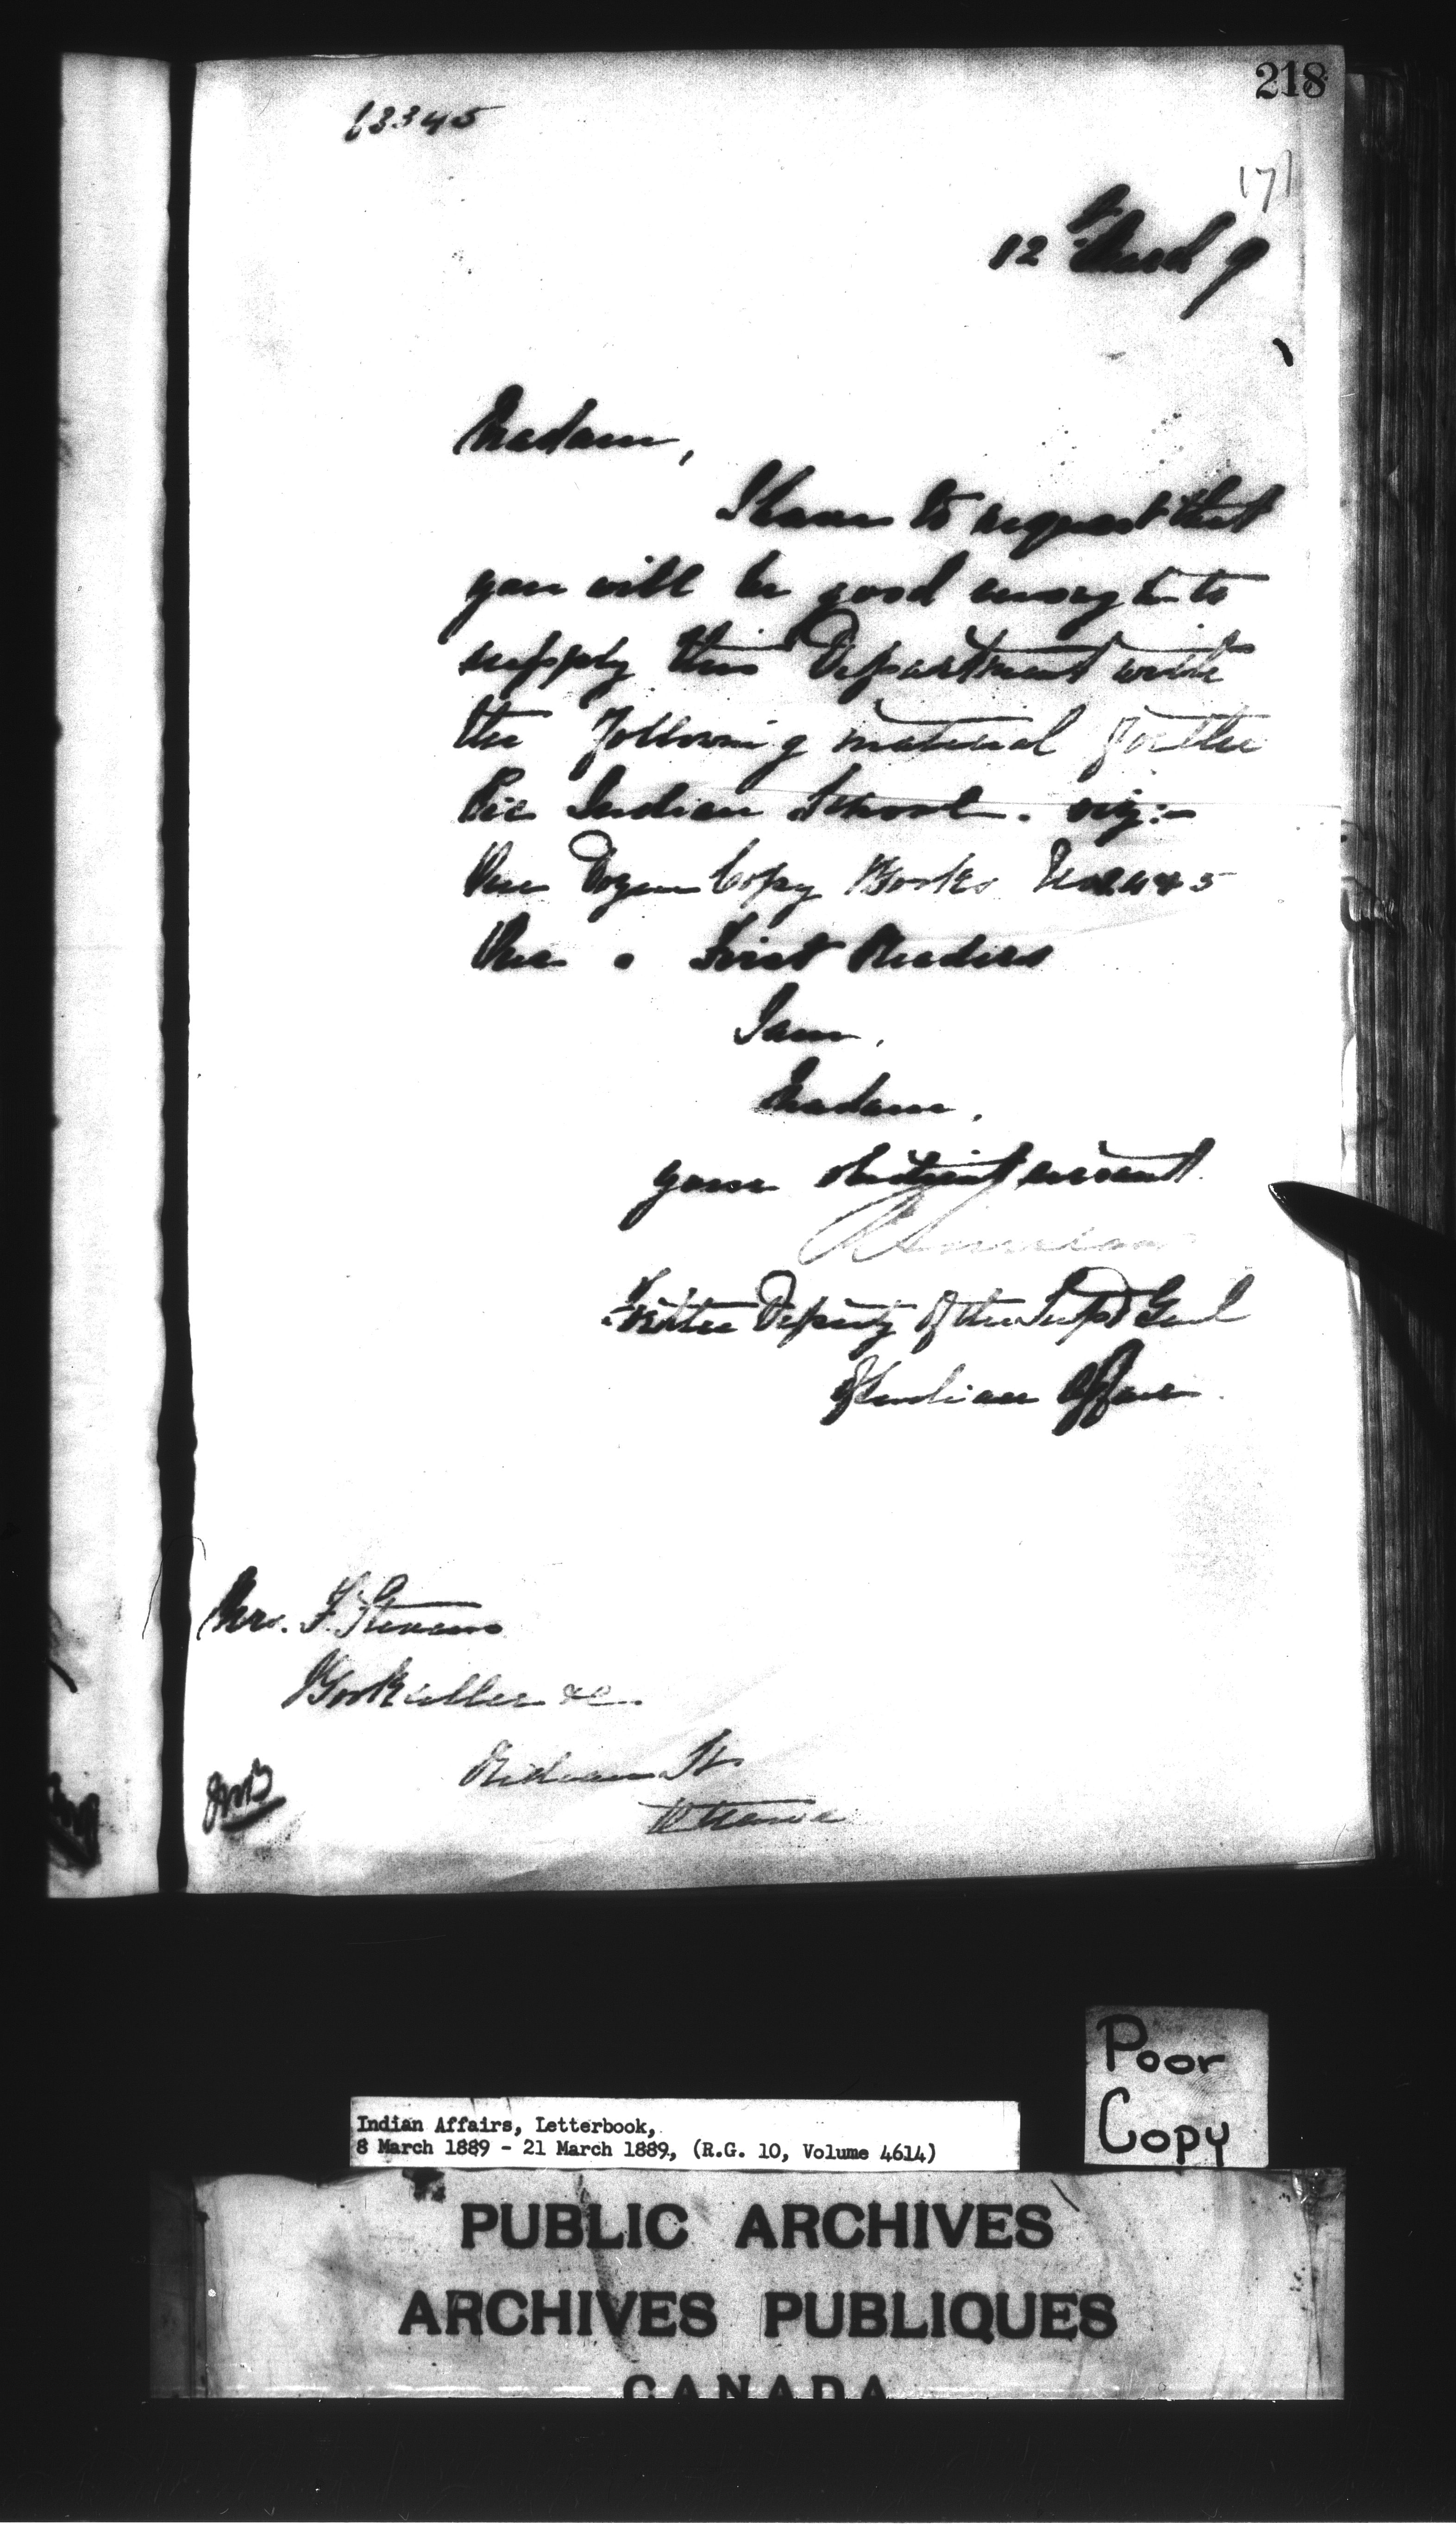 218
63345
171
12th March 9
Madam,
I have to request that
you will be good enough to
supply this Department with
the following material for the
Pic Indian School. viz:-
One Dozen Copy Books
One " First Readers
I am,
Madam,
your obedient servant.
For the Deputy of the Supt Genl
of Indian Affairs.
Mrs. F. Stevens
Bookseller &c.
Rideau St
Ottawa
Poor
Copy
Indian Affairs, Letterbook,
8 March 1889 - 21 March 1889, (R.G. 10, Volume 4614)
PUBLIC ARCHIVES
ARCHIVES PUBLIQUES
CANADA